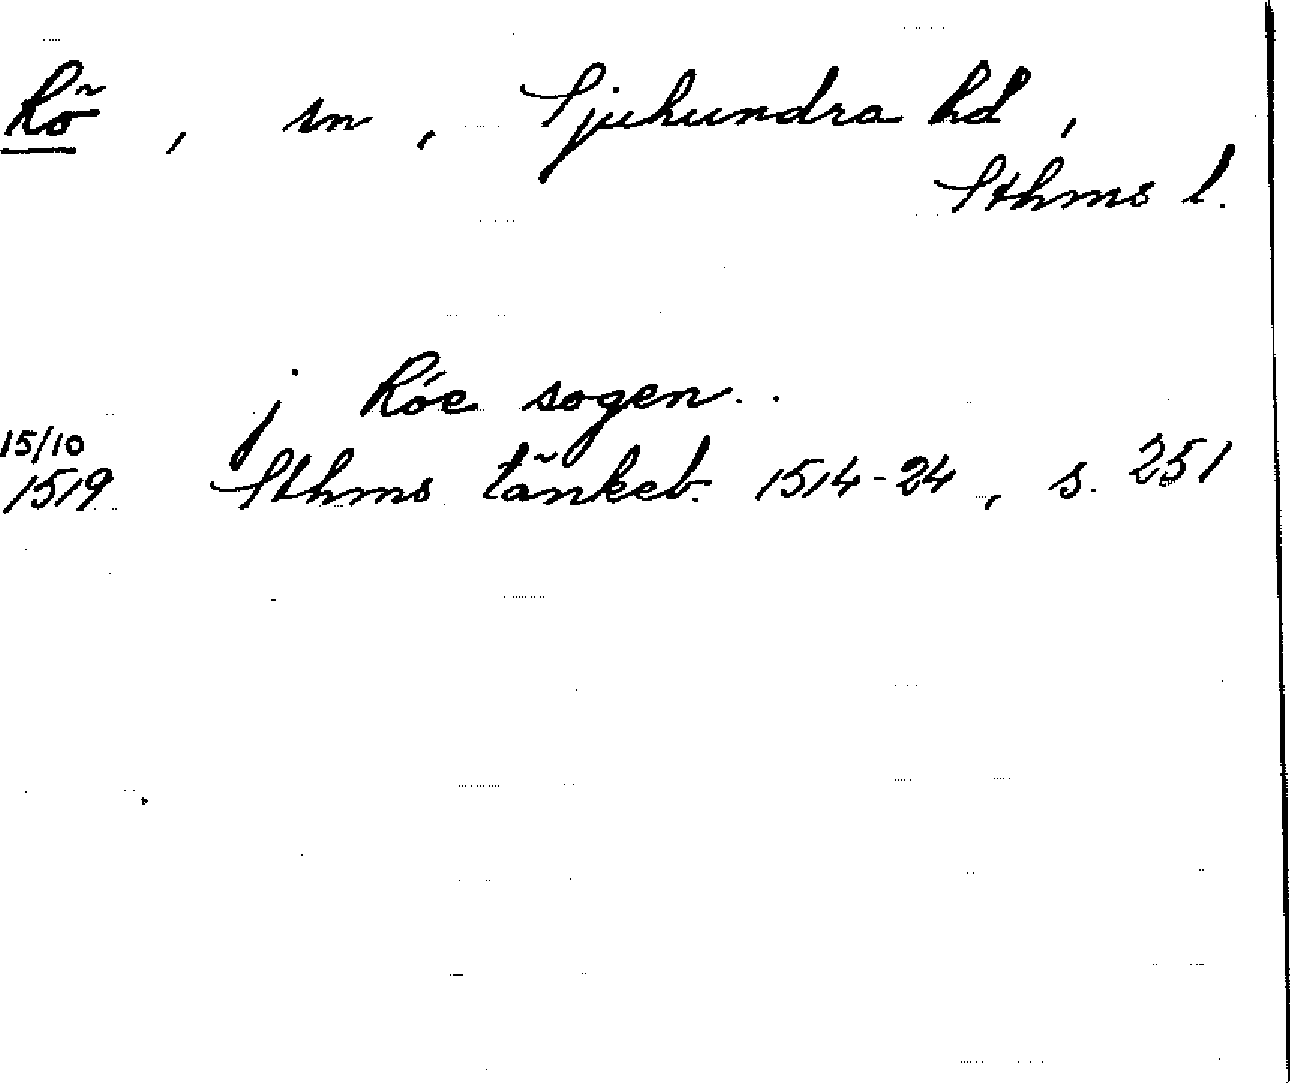 Rö, sn, Sjuhundra hd,
Sthms l.
j Róe sogen..
15/10
1519 Sthms tänkeb. 1514-24, s. 251